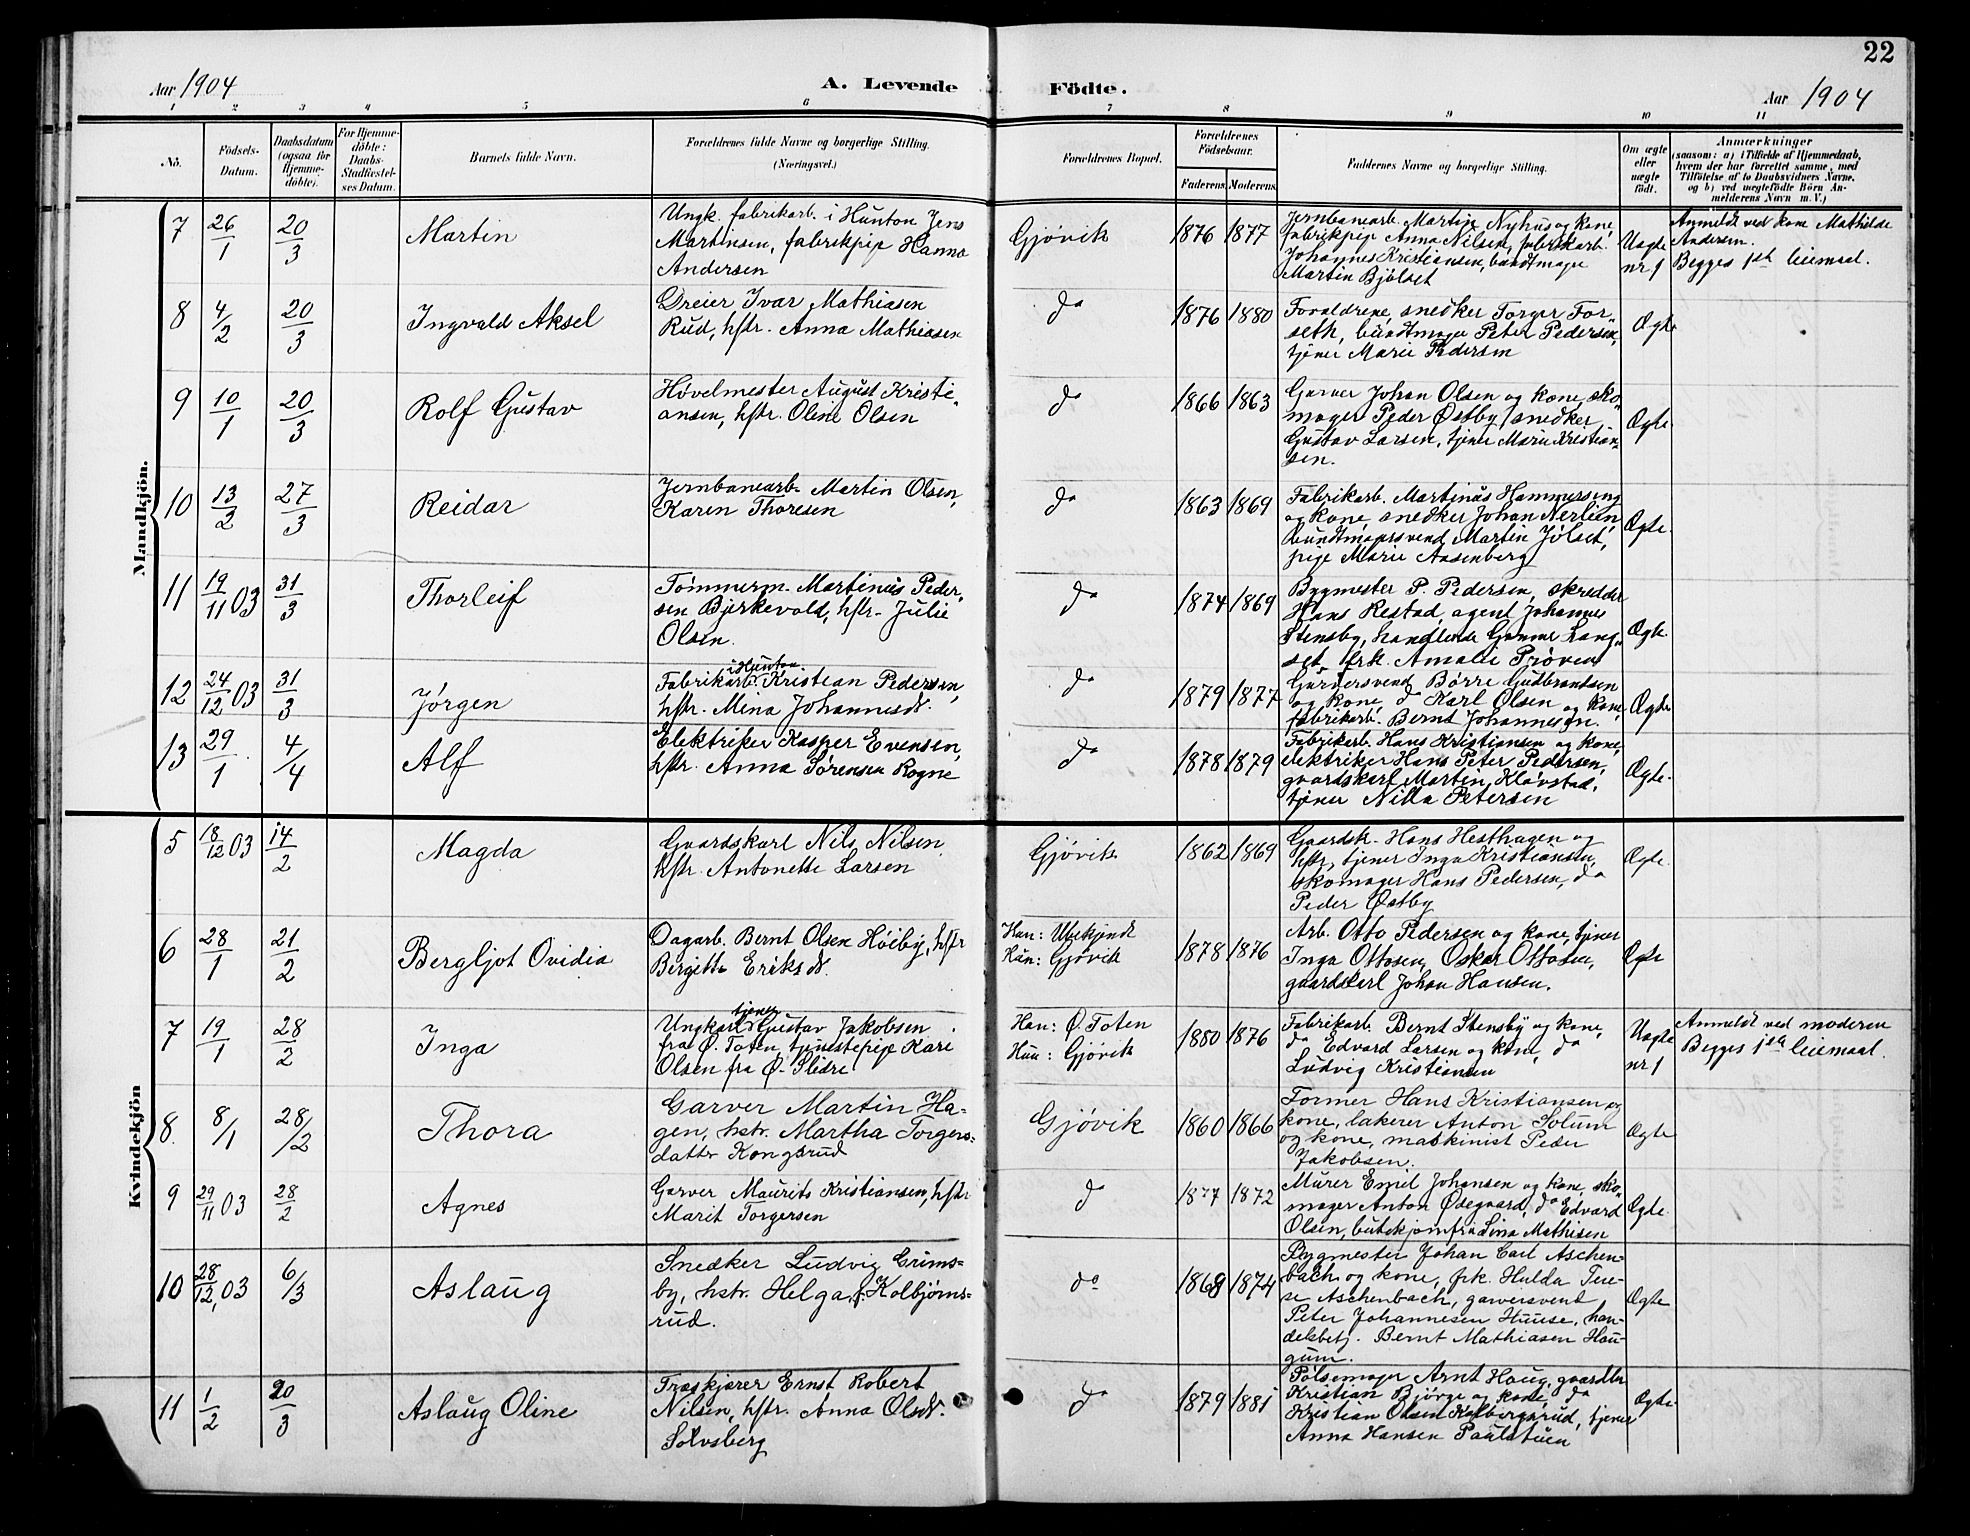 22
Aar 1904
A. Levende
Födte.
Aar 1904
1 2 3 4 5 6 7 8 9 10 11
No.
Födsels-Datum.
Daabsdatum (ogsaa for Hjemme-döbte).
For Hjemme-döbte: Daabs-Stadfæstel-ses Datum.
Barnets fulde Navn.
Forældrenes fulde Navne og borgerlige Stilling.
(Næringsvei.)
Forældrenes Bopæl.
Forældrenes Födselsaar.
Faderens. Moderens.
Faddernes Navne og borgerlige Stilling.
Om ægte eller uægte födt.
Anmærkninger
(saasom: a) i Tilfælde af Hjemmedaab,
hvem der har forrettet samme, med
Tilföielse af to Daabsvidners Navne.
og b) ved uægtefödte Börn An-
melderens Navn m. V.)
Mandkjön.
7 26/1 20/3 Martin
Ungk. fabrikarb. i Hunton Jens
Martinsen, fabrikpige Hanna
Andersen
Gjøvik 1876 1877
Jernbanearb. Martin Nyhus og kone,
fabrikpige Anna Nilsen, fabrikarb.
Johannes Kristiansen, bundtmager
Martin Bjølset
Uægte
nr 1
Anmeldt ved kone Mathilde
Andersen.
Begges 1ste leiemaal.
8 4/2 20/3 Ingvald Aksel
Dreier Ivar Mathiasen
Rud, hstr. Anna Mathiasen
do 1876 1880
Forældrene, snedker Torger For-
seth, bundtmager Peter Pedersen,
tjener Marie Pedersen
Ægte
9 10/1 20/3 Rolf Gustav
Høvelmester August Kristi-
ansen, hstr. Oline Olsen
do 1866 1863
Garver Johan Olsen og kone, sko-
mager Peder Østby, snedker
Gustav Larsen, tjener Marie Kristian-
sen.
Ægte
10 13/2 27/3 Reidar
Jernbanearb. Martin Olsen,
Karen Thoresen
do 1863 1869
Fabrikarb. Martinus Hammerseng
og kone, snedker Johan Nerlien
bundtmagersvend Martin Jølset,
pige Marie Aasenberg
Ægte.
11 19/11 03 31/3 Thorleif
Tømmerm. Martinus Peder-
sen Bjerkevold, hstr. Julie
Olsen.
do 1874 1869
Bygmester P. Pedersen, skredder
Hans Restad, agent Johannes
Stensby, handlende Gunnar Lang-
set, frk. Amalie Prøven
Ægte.
12 24/12 03 31/3 Jørgen
i Hunton
Fabrikarb. Kristian Pedersen,
hstr. Mina Johannesdr.
do 1879 1877
Garversvend Børre Gudbrandsen
og kone, do Karl Olsen og kone,
fabrikarb. Bernt Johannesen.
Ægte
13 29/1 4/4 Alf
Elektriker Kasper Evensen,
hstr. Anna Sørensen Rogne
do 1878 1879
Fabrikarb. Hans Kristiansen og kone,
elektriker Hans Peter Pedersen,
gaardskarl Martin Kløvstad,
tjener Nilla Petersen
Ægte.
Kvindekjön
5 18/12 03 14/2 Magda
Gaardskarl Nils Nilsen
hstr. Antonette Larsen
Gjøvik 1862 1869
Gaardsk. Hans Hesthagen og
hstr, tjener Inga Kristiansen,
skomager Hans Pedersen, do
Peder Østby
Ægte.
6 28/1 21/2 Bergljot Ovidia
Dagarb. Bernt Olsen Høiby, hstr
Bergitte Eriksdr.
Han: Ubekjendt
Hun: Gjøvik
1878 1876
Arb. Otto Pedersen og kone, tjener
Inga Ottosen, Oskar Ottosen,
gaardskarl Johan Hansen.
Ægte
7 19/1 28/2 Inga
tjener
Ungkarl Gustav Jakobsen
fra Ø. Toten, tjenestepige Kari
Olsen fra Ø. Slidre
Han: Ø. Toten
Hun: Gjøvik
1880 1876
Fabrikarb. Bernt Stensby og kone,
do Edvard Larsen og kone, do
Ludvig Kristiansen
Uægte
nr 1
Anmeldt ved moderen
Begges 1ste leiemaal.
8. 8/1 28/2 Thora
Garver Martin Ha-
gen, hstr. Martha Torgers-
datter Kongsrud
Gjøvik 1860 1866
Former Hans Kristiansen og
kone, lakerer Anton Solum
og kone, maskinist Peder
Jakobsen.
Ægte
9 29/11 03 28/2 Agnes
Garver Maurits Kristiansen, hstr
Marit Torgersen
do 1877 1872
Murer Emil Johansen og kone, sko-
mager Anton Ødegaard, do Edvard
Olsen, butikjomfru Lina Mathisen
Ægte.
10 28/12 03 6/3 Aslaug
Snedker Ludvig Grims-
by, hstr. Helga f. Kolbjørns-
rud.
do 1868 1874
Bygmester Johan Carl Aschen-
bach og kone, frk. Hulda Tere-
se Aschenbach, garversvend
Peter Johannesen Huuse, han-
delsbetj. Bernt Mathiasen Hau-
gum.
Ægte
11 1/2 20/3 Aslaug Oline
Træskjærer Ernst Robert
Nilsen, hstr. Anna Olsdr.
Solvsberg
do 1879 1881
Pølsemager Arnt Haug, gaardbr.
Kristian Bjørge og kone, do
Kristian Olsen Kolbergsrud, tjener
Anna Hansen Paulstuen
Ægte